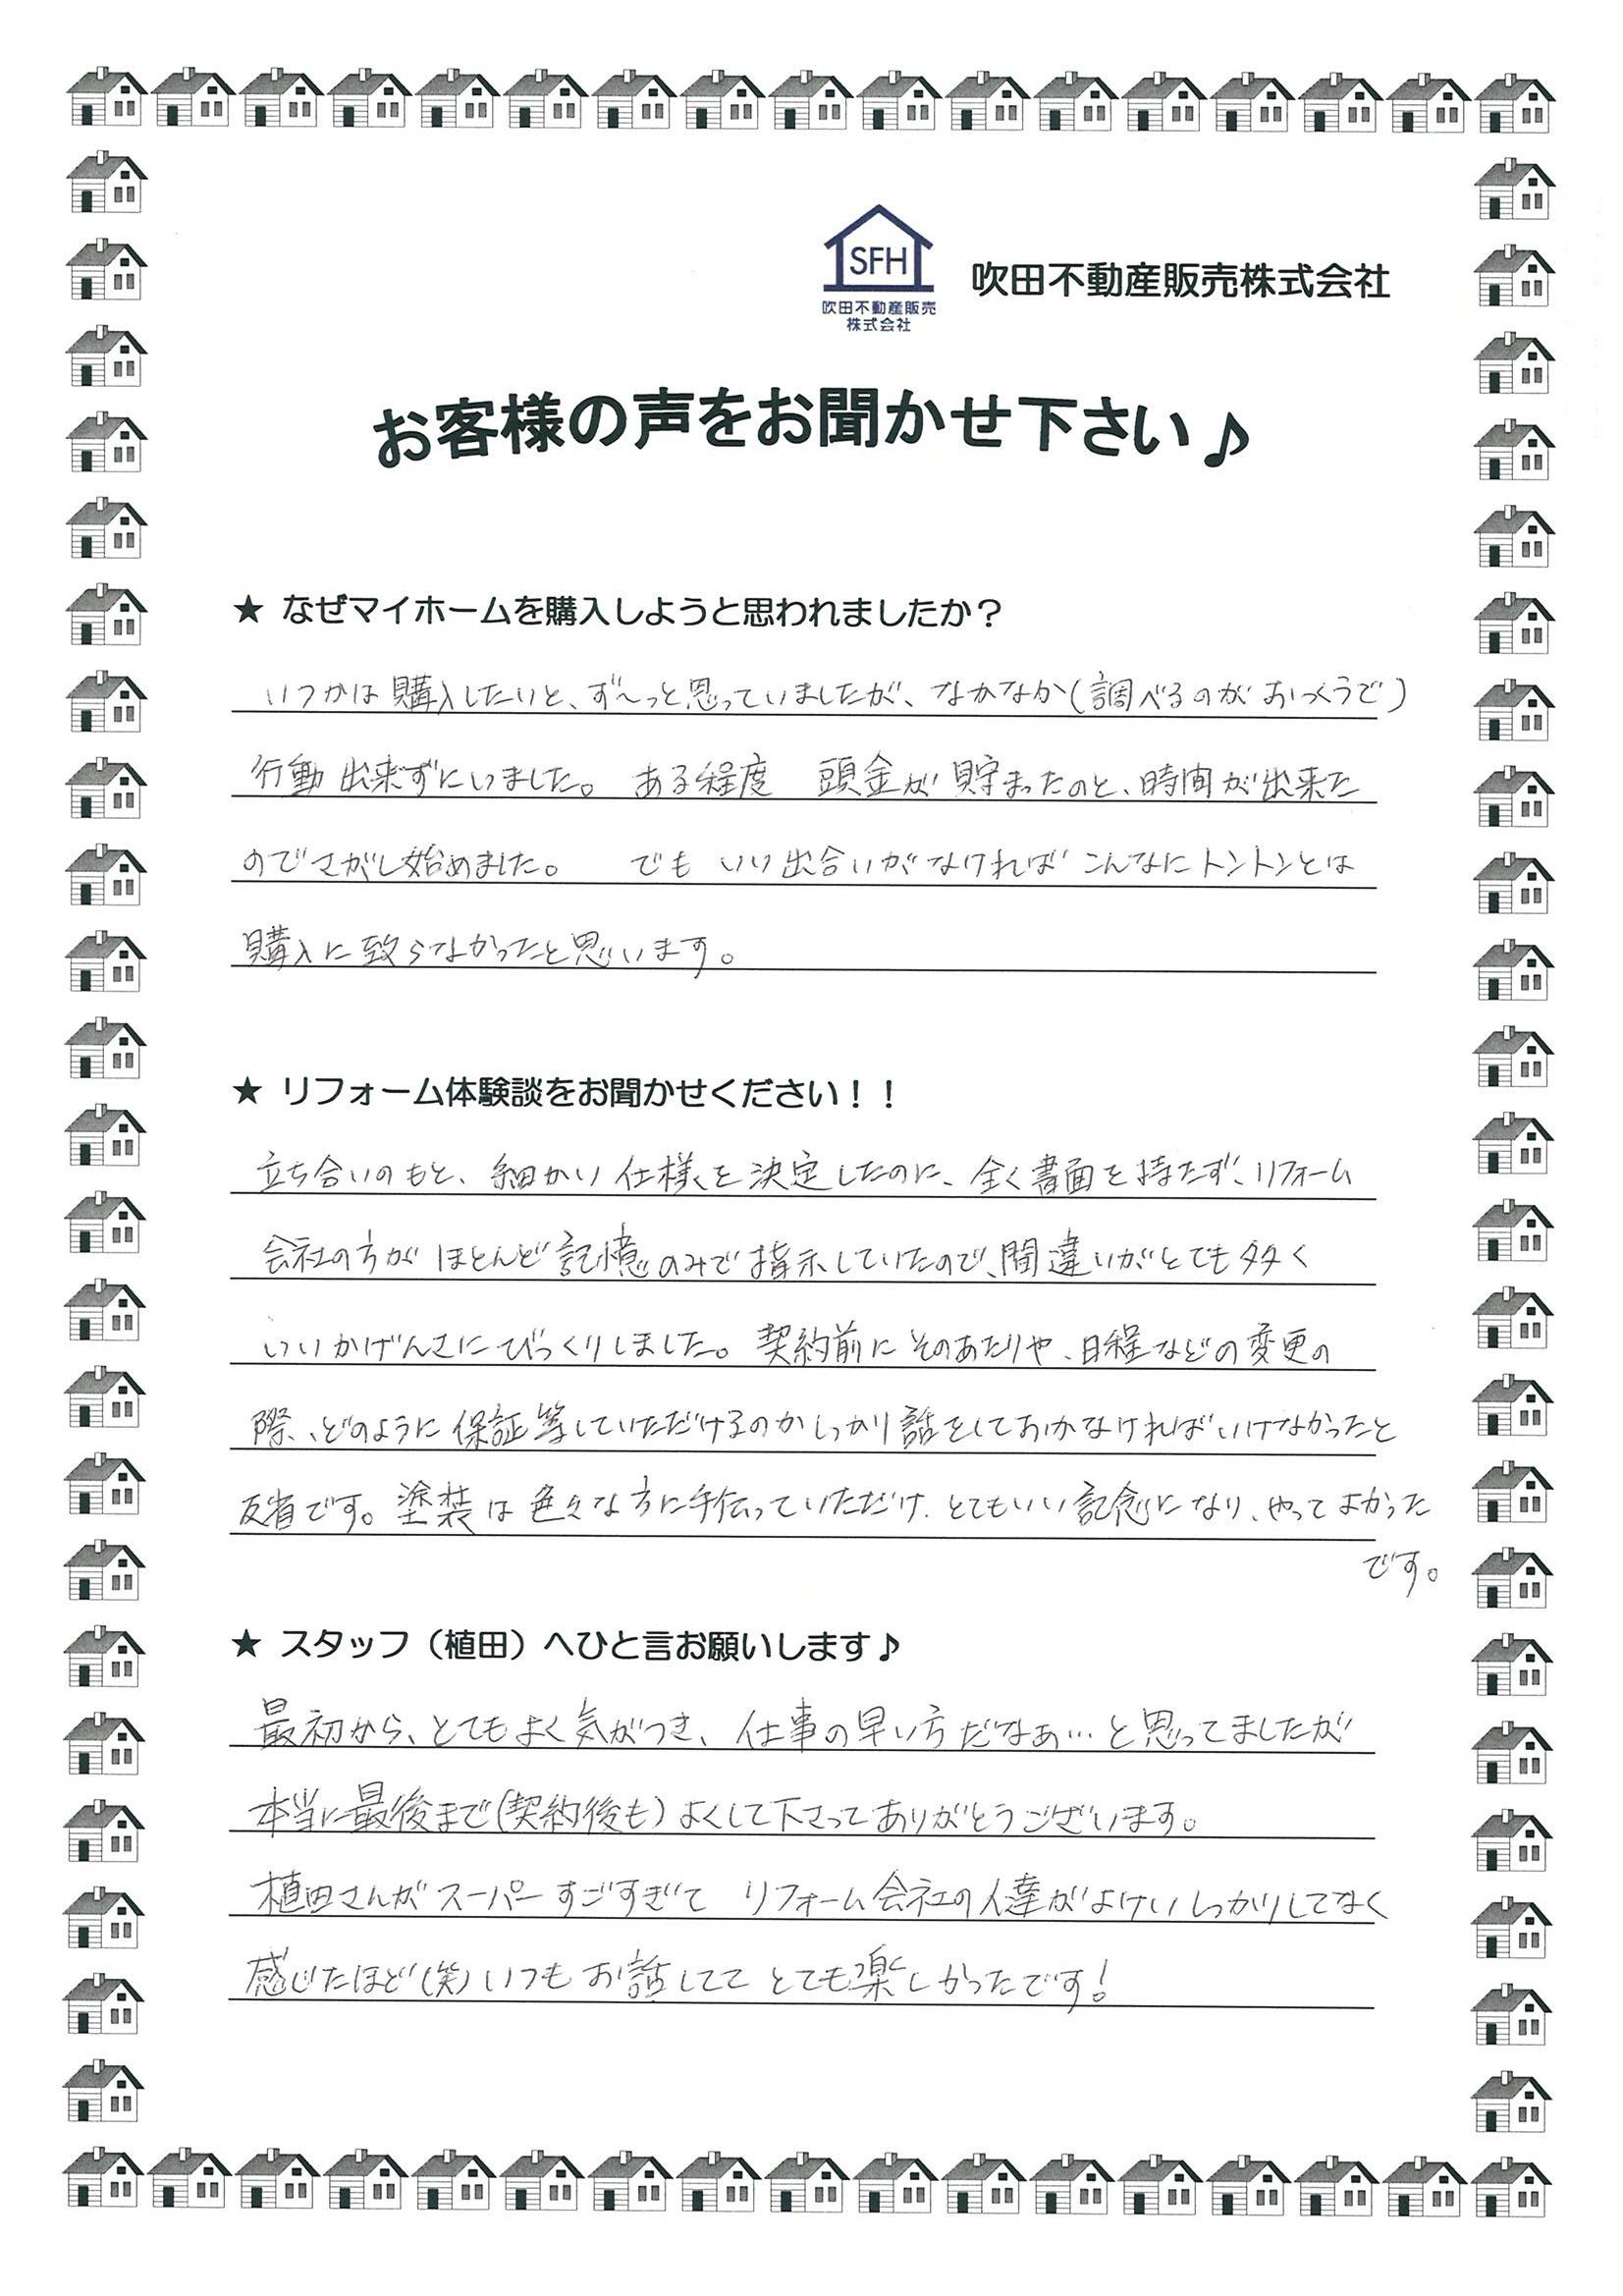 SFH
吹田不動産販売
株式会社
吹田不動産販売株式会社
お客様の声をお聞かせ下さい♪
★ なぜマイホームを購入しようと思われましたか？
いつかは購入したいと、ず〜っと思っていましたが、なかなか(調べるのがおっくうで)
行動出来ずにいました。 ある程度 頭金が貯まったのと、時間が出来た
のでさがし始めました。 でも いい出合いがなければ こんなにトントンとは
購入に致らなかったと思います。
★ リフォーム体験談をお聞かせください！！
立ち合いのもと、細かい仕様を決定したのに、全く書面を持たず、リフォーム
会社の方が ほとんど記憶のみで指示していたので、間違いがとても多く
いいかげんさにびっくりしました。契約前にそのあたりや、日程などの変更の
際、どのように保証等していただけるのかしっかり話をしておかなければいけなかったと
反省です。塗装は色々な方に手伝っていただけ、とてもいい記念になり、やってよかった
です。
★ スタッフ（植田）へひと言お願いします♪
最初から、とてもよく気がつき、仕事の早い方だなぁ…と思ってましたが
本当に最後まで(契約後も)よくして下さってありがとうございます。
植田さんがスーパーすごすぎて リフォーム会社の人達がよけいしっかりしてなく
感じたほど(笑)いつもお話してて とても楽しかったです!